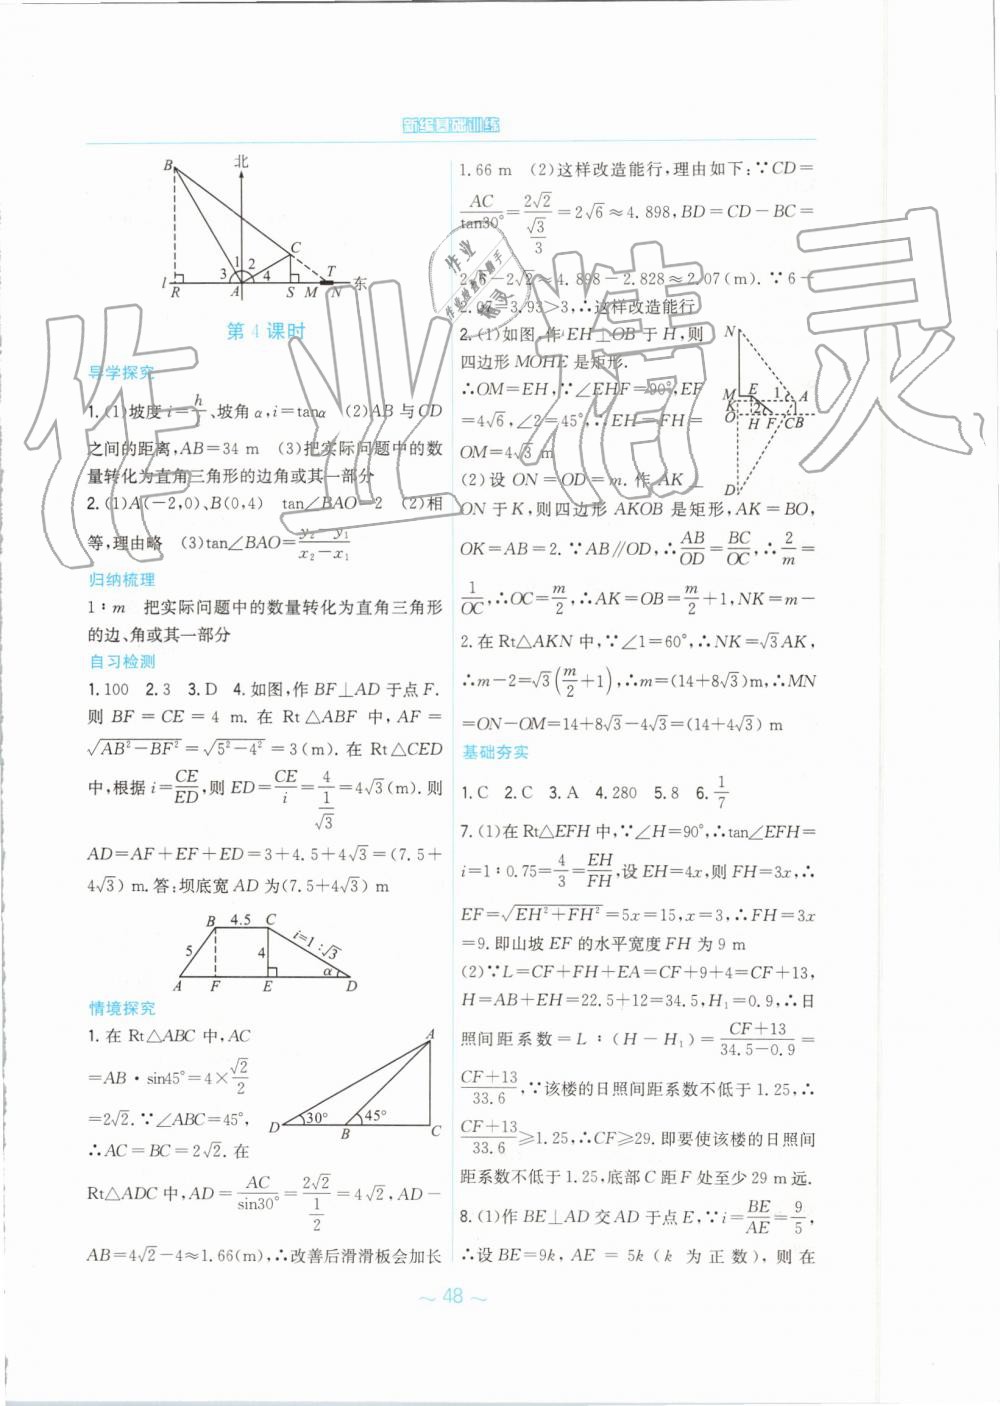 新编基础训练
B
北
C
1 2
3 4
T
l
R A S M N 东
第 4 课时
导学探究
1. (1)坡度 i=h/l、坡角 α,i=tanα (2)AB 与 CD
之间的距离,AB=34 m (3)把实际问题中的数
量转化为直角三角形的边角或其一部分
2. (1)A(-2,0)、B(0,4) tan∠BAO=2 (2)相
等,理由略 (3)tan∠BAO=(y₂-y₁)/(x₂-x₁)
归纳梳理
1∶m 把实际问题中的数量转化为直角三角形
的边、角或其一部分
自习检测
1. 100 2. 3 3. D 4. 如图,作 BF⊥AD 于点 F.
则 BF = CE = 4 m. 在 Rt△ABF 中, AF =
√(AB²-BF²)=√(5²-4²)=3(m). 在 Rt△CED
中,根据 i=CE/ED,则 ED=CE/i=4/(1/√3)=4√3(m). 则
AD=AF+EF+ED=3+4.5+4√3=(7.5+
4√3) m. 答:坝底宽 AD 为(7.5+4√3) m
B 4.5 C
5 4 i=1∶√3
α
A F E D
情境探究
1. 在 Rt△ABC 中, AC
=AB·sin45°=4×√2/2
=2√2. ∵∠ABC=45°,
∴AC=BC=2√2. 在
A
30° 45°
D B C
Rt△ADC 中, AD=AC/sin30°=2√2/(1/2)=4√2, AD-
AB=4√2-4≈1.66(m),∴改善后滑滑板会加长
1.66 m (2)这样改造能行,理由如下:∵CD=
AC/tan30°=2√2/(√3/3)=2√6≈4.898, BD=CD-BC=
2√6-2√2≈4.898-2.828≈2.07(m). ∵6-
2.07=3.93>3,∴这样改造能行
2. (1)如图,作 EH⊥OB 于 H,则
四边形 MOHE 是矩形.
∴OM=EH,∵∠EHF=90°,EF
=4√6,∠2=45°,∴EH=FH=
OM=4√3 m
N
M E 1 A
K 2
O H F C B
D
(2)设 ON=OD=m. 作 AK⊥
ON 于 K,则四边形 AKOB 是矩形, AK=BO,
OK=AB=2. ∵AB∥OD,∴AB/OD=BC/OC,∴2/m=
1/OC,∴OC=m/2,∴AK=OB=m/2+1,NK=m-
2. 在 Rt△AKN 中,∵∠1=60°,∴NK=√3AK,
∴m-2=√3(m/2+1),∴m=(14+8√3)m,∴MN
=ON-OM=14+8√3-4√3=(14+4√3) m
基础夯实
1. C 2. C 3. A 4. 280 5. 8 6. 1/7
7. (1)在 Rt△EFH 中,∵∠H=90°,∴tan∠EFH=
i=1∶0.75=4/3=EH/FH,设 EH=4x,则 FH=3x,∴
EF=√(EH²+FH²)=5x=15,x=3,∴FH=3x
=9. 即山坡 EF 的水平宽度 FH 为 9 m
(2)∵L=CF+FH+EA=CF+9+4=CF+13,
H=AB+EH=22.5+12=34.5,H₁=0.9,∴日
照间距系数=L∶(H-H₁)=(CF+13)/(34.5-0.9)=
(CF+13)/33.6,∵该楼的日照间距系数不低于 1.25,∴
(CF+13)/33.6≥1.25,∴CF≥29. 即要使该楼的日照间
距系数不低于 1.25,底部 C 距 F 处至少 29 m 远.
8. (1)作 BE⊥AD 交 AD 于点 E,∵i=BE/AE=9/5,
∴设 BE=9k, AE = 5k ( k 为正数), 则在
~ 48 ~
作业精灵